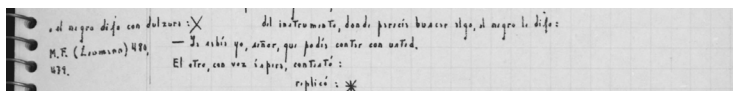 , el negro dijo con dulzura :
M.F. (Leumann) 480,
479.
del instrumento, donde parecía buscar algo, el negro le dijo:
— Ya sabía yo, señor, que podía contar con usted.
El otro, con voz áspera, contestó :
replicó :